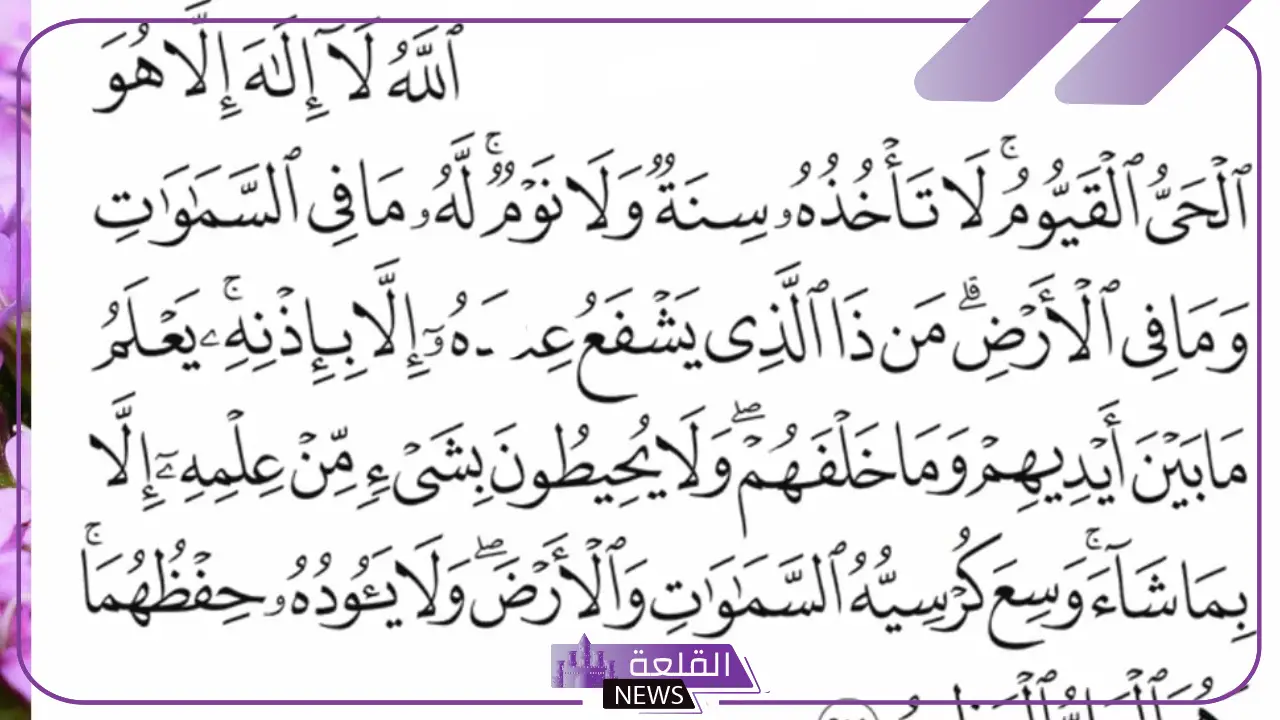 ٱللَّهُ لَآ إِلَٰهَ إِلَّا هُوَ
ٱلْحَىُّ ٱلْقَيُّومُ ۚ لَا تَأْخُذُهُۥ سِنَةٌ وَلَا نَوْمٌ ۚ لَّهُۥ مَا فِى ٱلسَّمَٰوَٰتِ
وَمَا فِى ٱلْأَرْضِ ۗ مَن ذَا ٱلَّذِى يَشْفَعُ إِلَّا بِإِذْنِهِۦ ۚ يَعْلَمُ
مَا بَيْنَ أَيْدِيهِمْ وَمَا خَلْفَهُمْ ۖ وَلَا يُحِيطُونَ بِشَىْءٍ مِّنْ عِلْمِهِۦٓ إِلَّا
بِمَا شَآءَ ۚ وَسِعَ كُرْسِيُّهُ ٱلسَّمَٰوَٰتِ وَٱلْأَرْضَ ۖ وَلَا يَـُٔودُهُۥ حِفْظُهُمَا ۚ
القلعة
NEWS